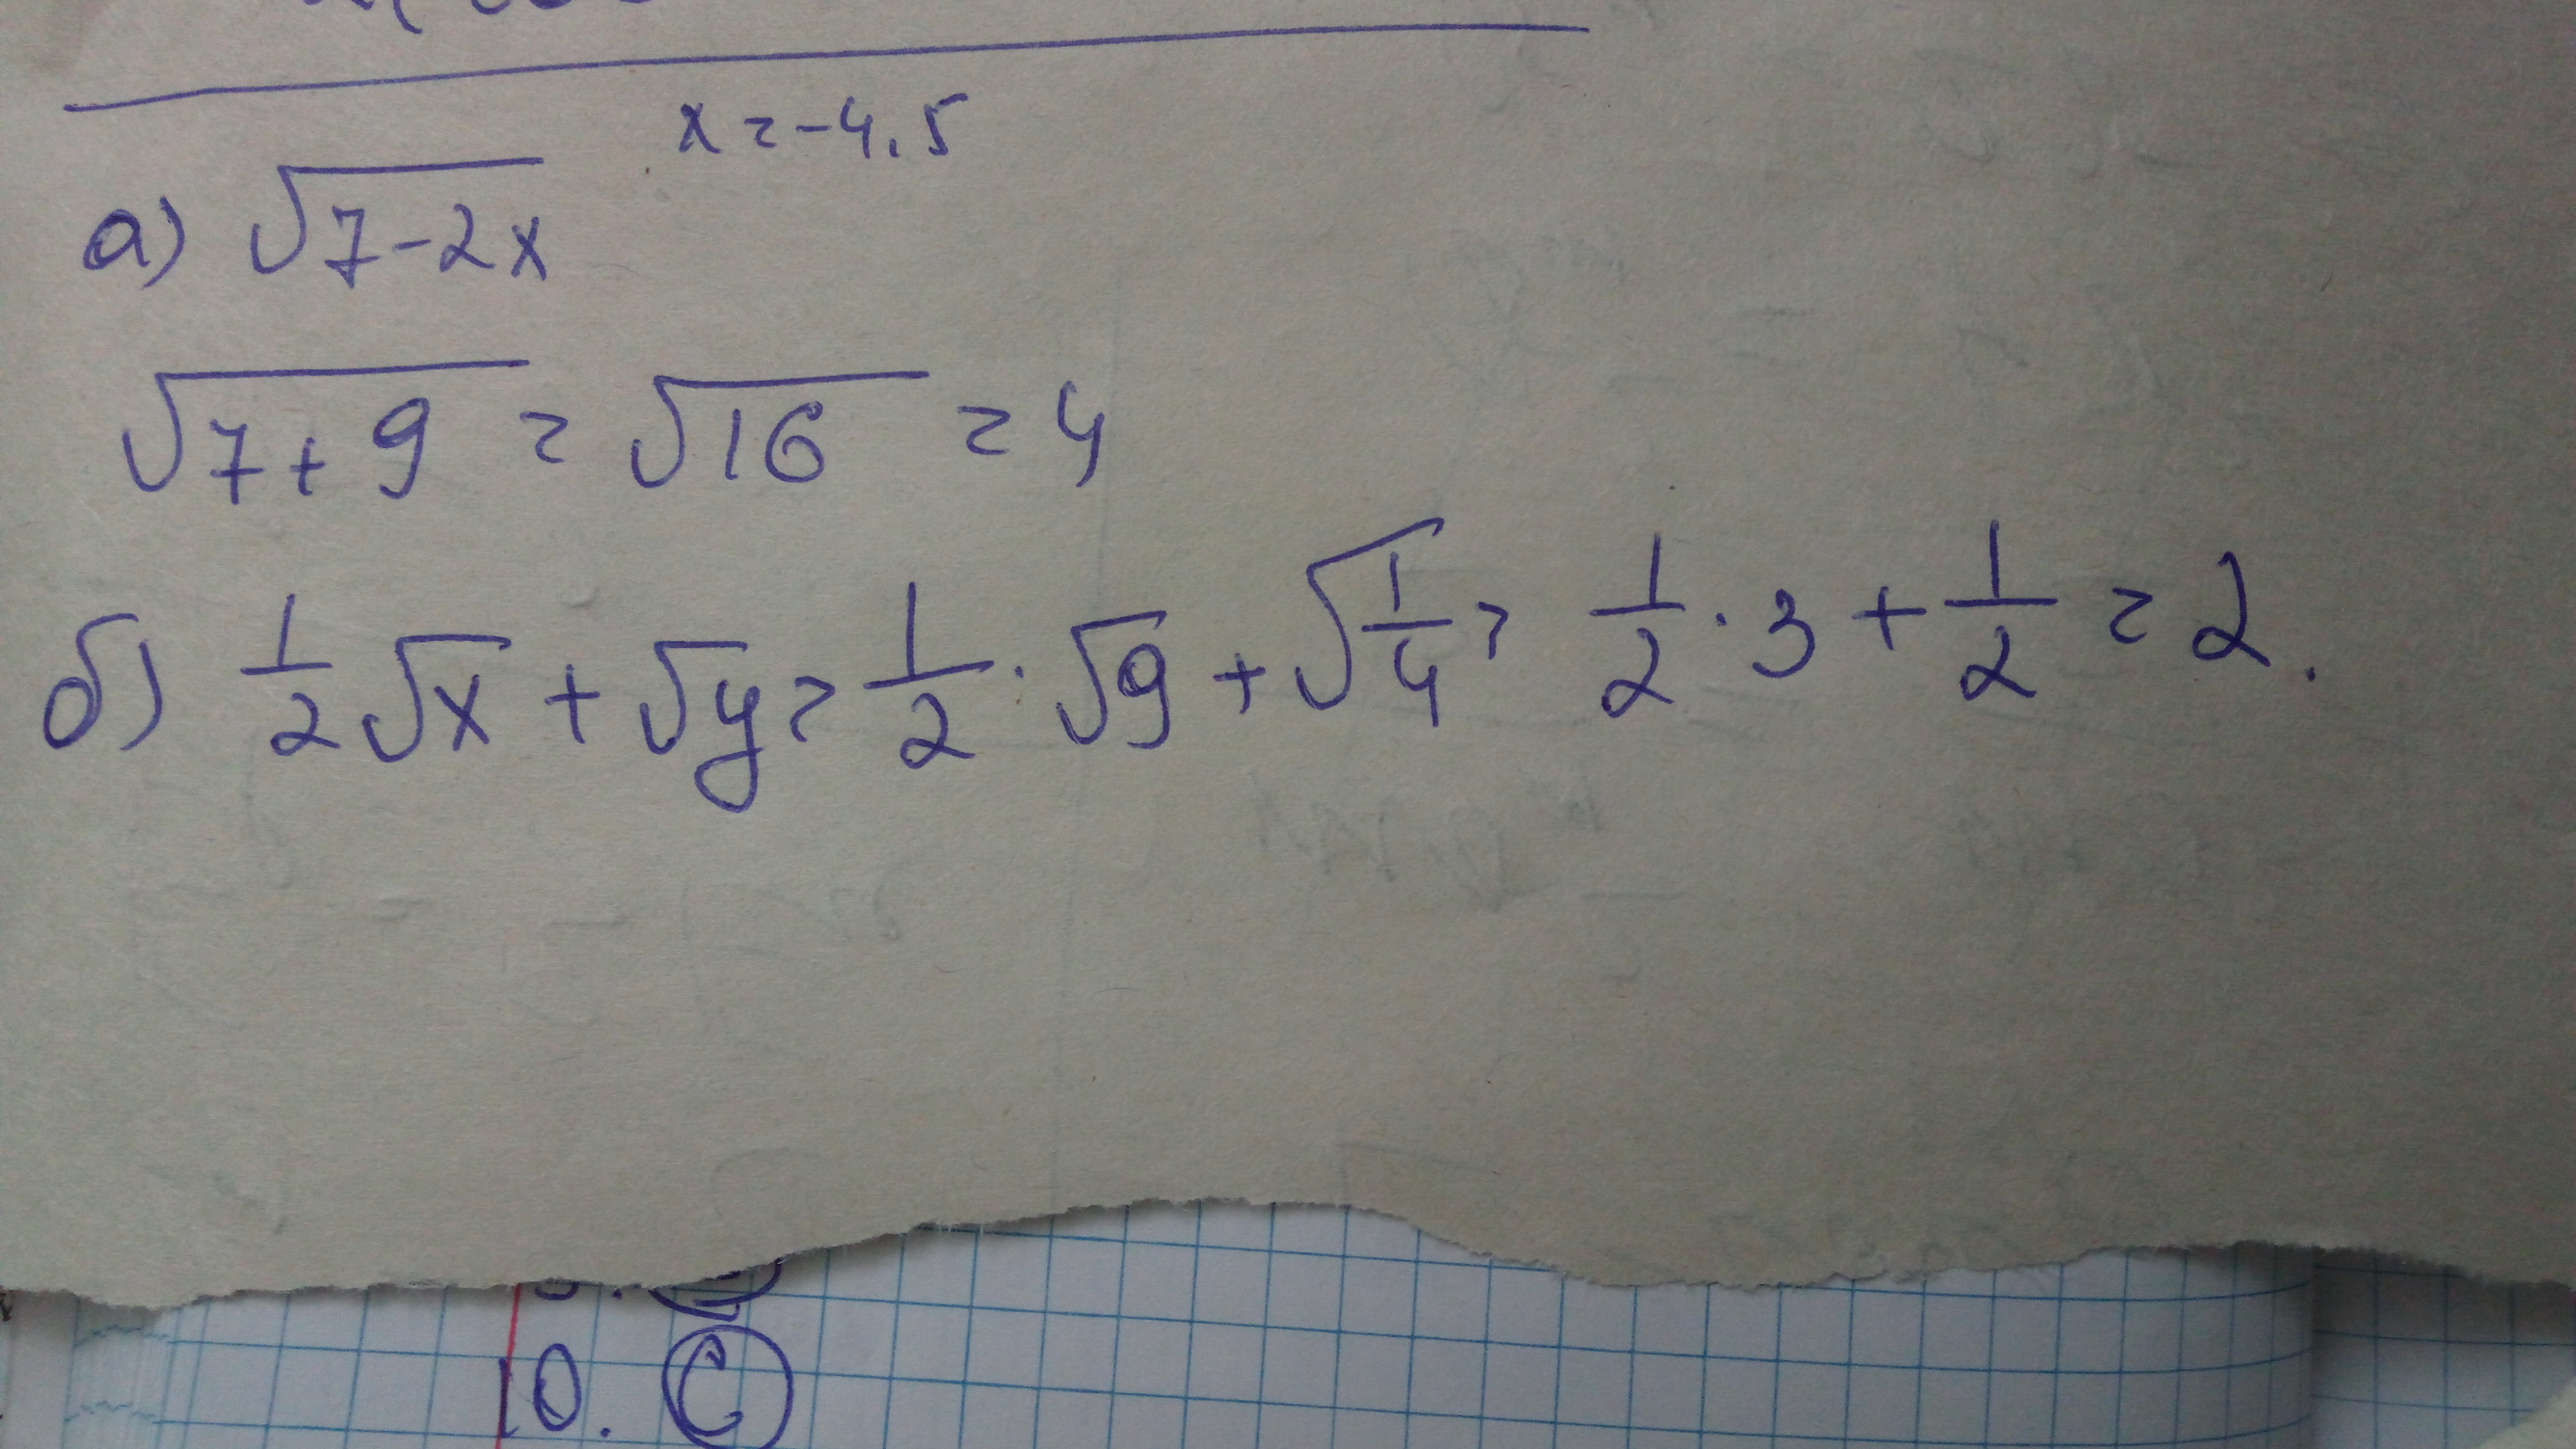 x = -4.5
а) √(7-2x)
√(7+9) = √16 = 4
б) 1/2 √x + √y = 1/2 · √9 + √(1/4) = 1/2 · 3 + 1/2 = 2.
10. C